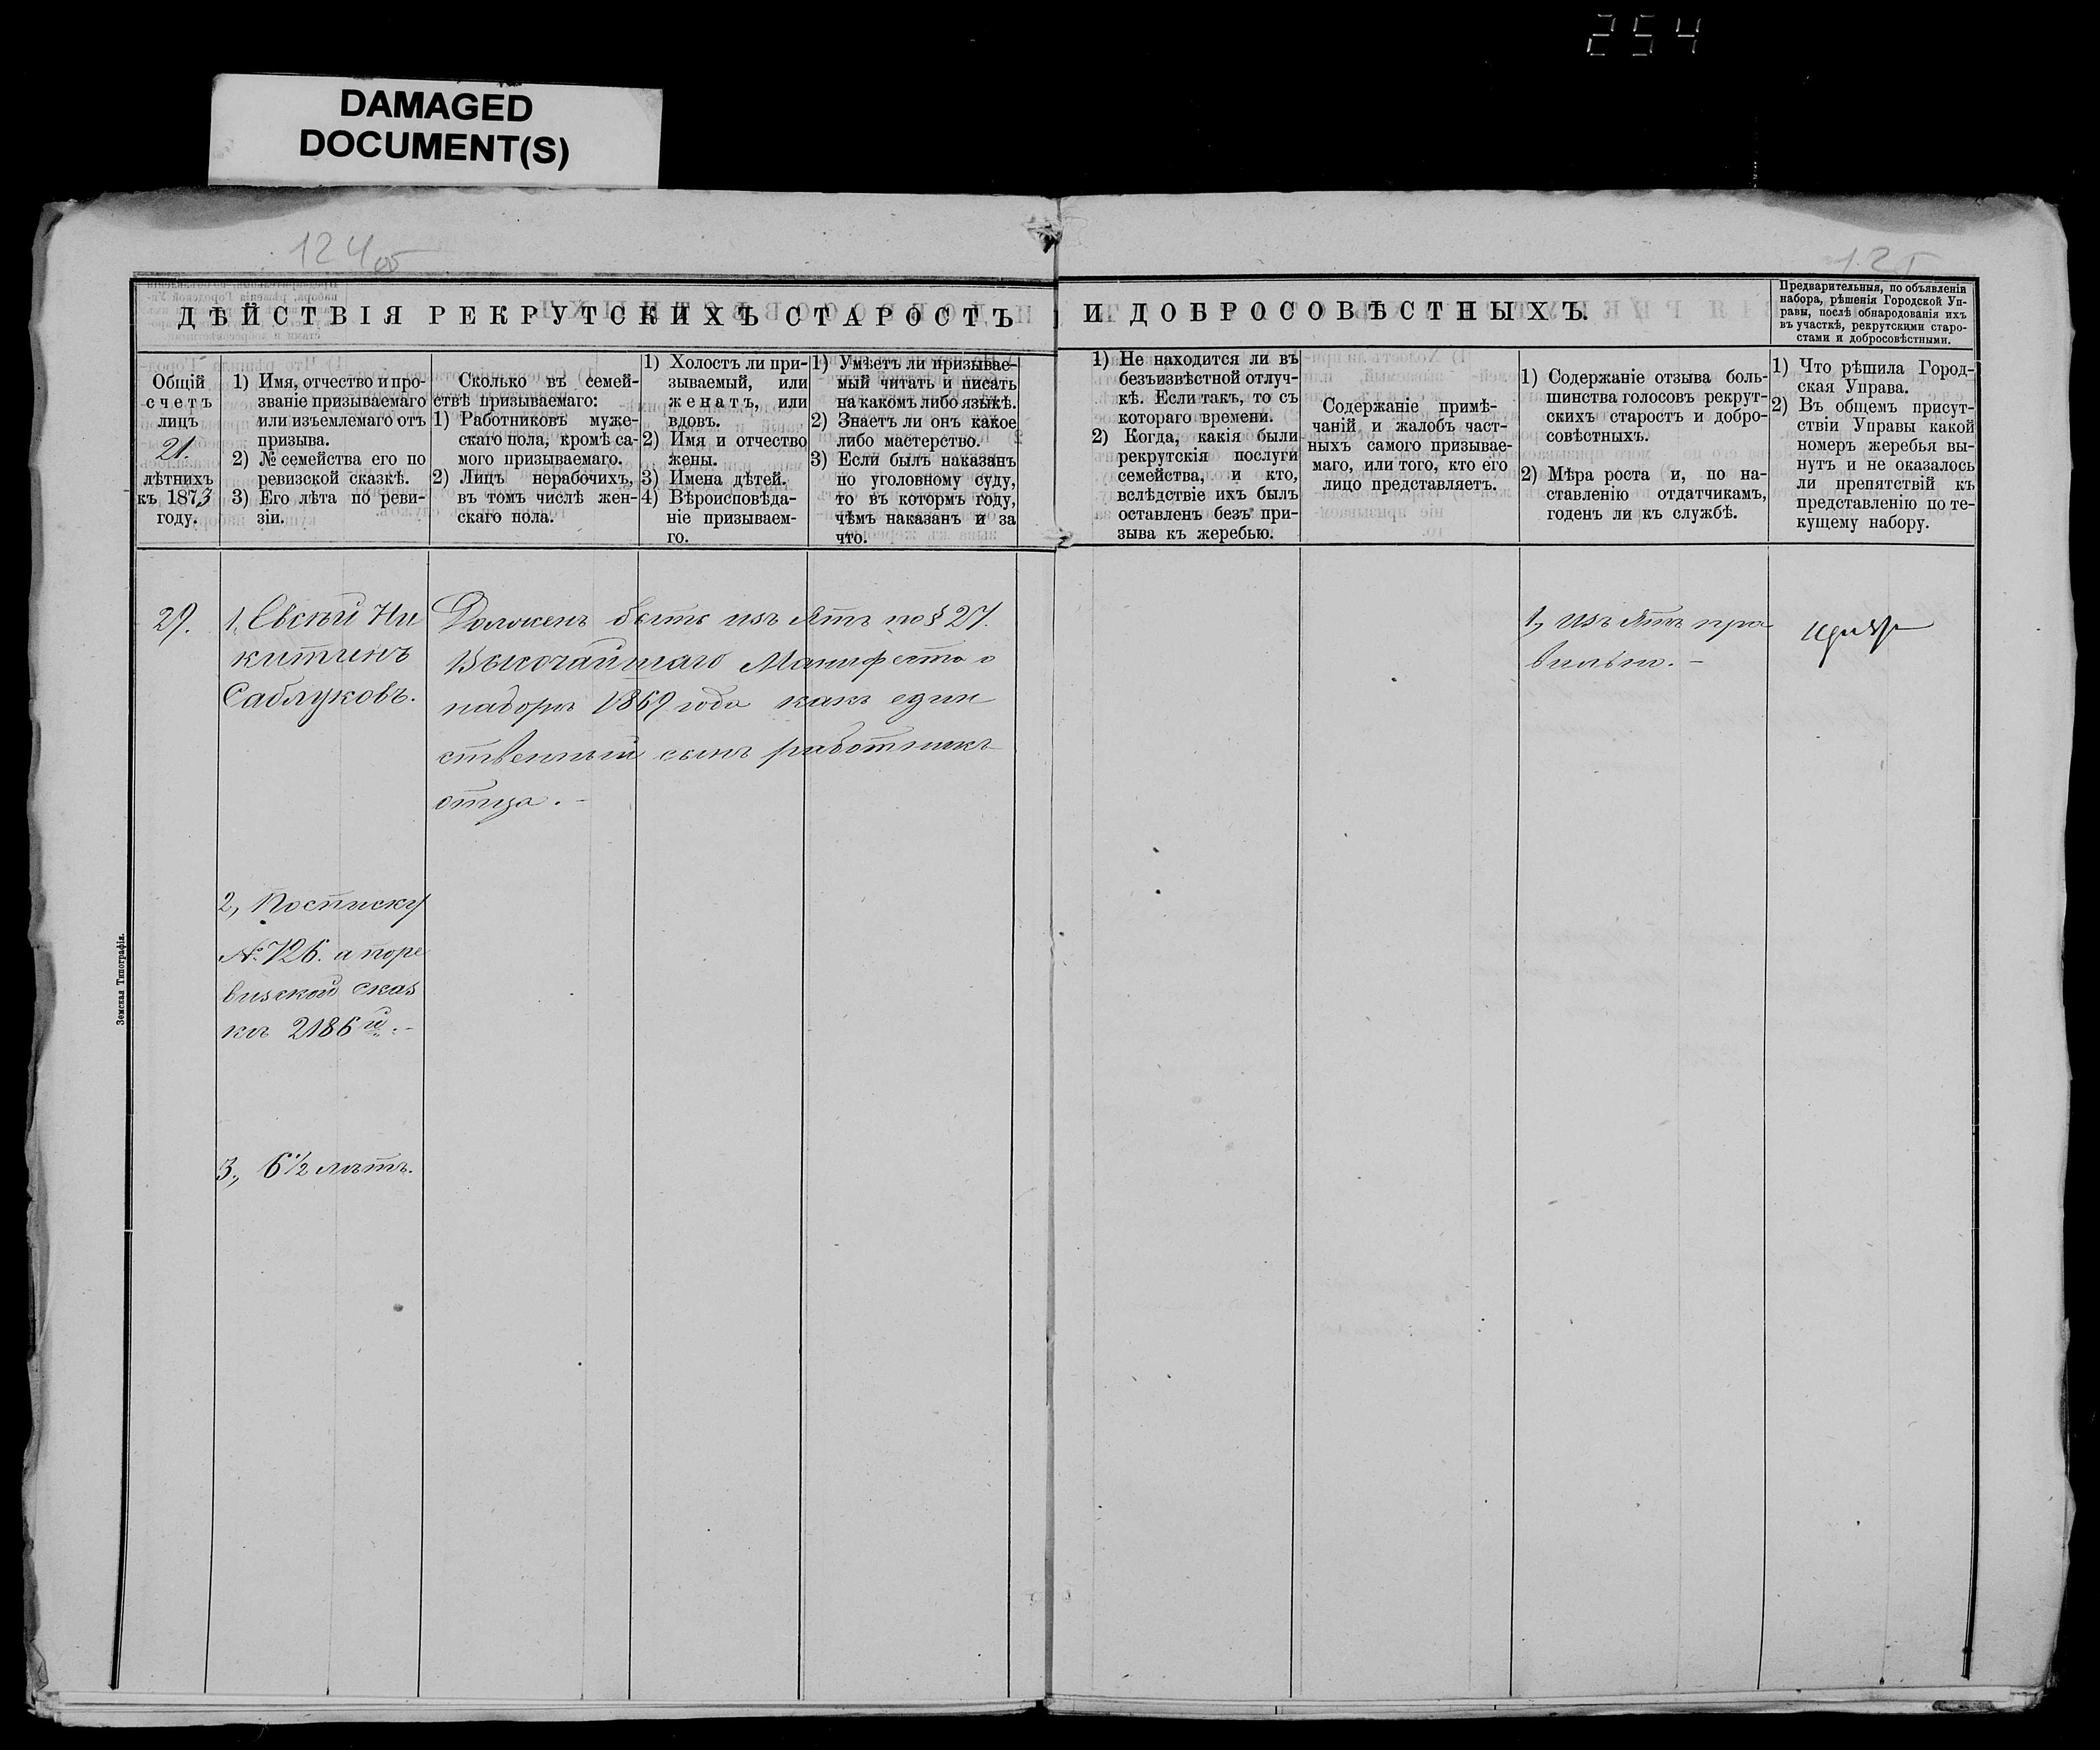 254
DAMAGED
DOCUMENT(S)
124об
125
ДѢЙСТВІЯ РЕКРУТСКИХЪ СТАРОСТЪ
И ДОБРОСОВѢСТНЫХЪ.
Предварительныя, по объявленіи
набора, рѣшенія Городской Уп-
равы, послѣ обнародованія ихъ
въ участкѣ, рекрутскими старо-
стами и добросовѣстными.
Общій
счетъ
лицъ
21.
лѣтнихъ
къ 1873
году.
1) Имя, отчество и про-
званіе призываемаго
или изъемлемаго отъ
призыва.
2) № семейства его по
ревизской сказкѣ.
3) Его лѣта по реви-
зіи.
Сколько въ семей-
ствѣ призываемаго:
1) Работниковъ муже-
скаго пола, кромѣ са-
мого призываемаго.
2) Лицъ нерабочихъ,
въ томъ числѣ жен-
скаго пола.
1) Холостъ ли при-
зываемый, или
женатъ, или
вдовъ.
2) Имя и отчество
жены.
3) Имена дѣтей.
4) Вѣроисповѣда-
ніе призываем-
го.
1) Умѣетъ ли призывае-
мый читать и писать
на какомъ либо языкѣ.
2) Знаетъ ли онъ какое
либо мастерство.
3) Если былъ наказанъ
по уголовному суду,
то въ котормъ году,
чѣмъ наказанъ и за
что.
1) Не находится ли въ
безъизвѣстной отлуч-
кѣ. Если такъ, то съ
котораго времени.
2) Когда, какія были
рекрутскія послуги
семейства, и кто,
вслѣдствіе ихъ былъ
оставленъ безъ при-
зыва къ жеребью.
Содержаніе примѣ-
чаній и жалобъ част-
ныхъ самого призывае-
маго, или того, кто его
лицо представляетъ.
1) Содержаніе отзыва боль-
шинства голосовъ рекрут-
скихъ старостъ и добро-
совѣстныхъ.
2) Мѣра роста и, по на-
ставленію отдатчикамъ,
годенъ ли къ службѣ.
1) Что рѣшила Город-
ская Управа.
2) Въ общемъ присут-
ствіи Управы какой
номеръ жеребья вы-
нутъ и не оказалось
ли препятствій къ
представленію по те-
кущему набору.
29.
1, Евсѣй Ни
китинъ
Саблуковъ.
2, По списку
№ 726. а по ре
визской сказ
кѣ 2186й. –
3, 6½ лѣтъ.
Долженъ быть изъятъ по § 27.
Высочайшаго Манифеста о
наборѣ 1869 года какъ един
ственный сынъ работникъ
отца. –
1, изъятъ пра
вильно. –
Земская Типографія.